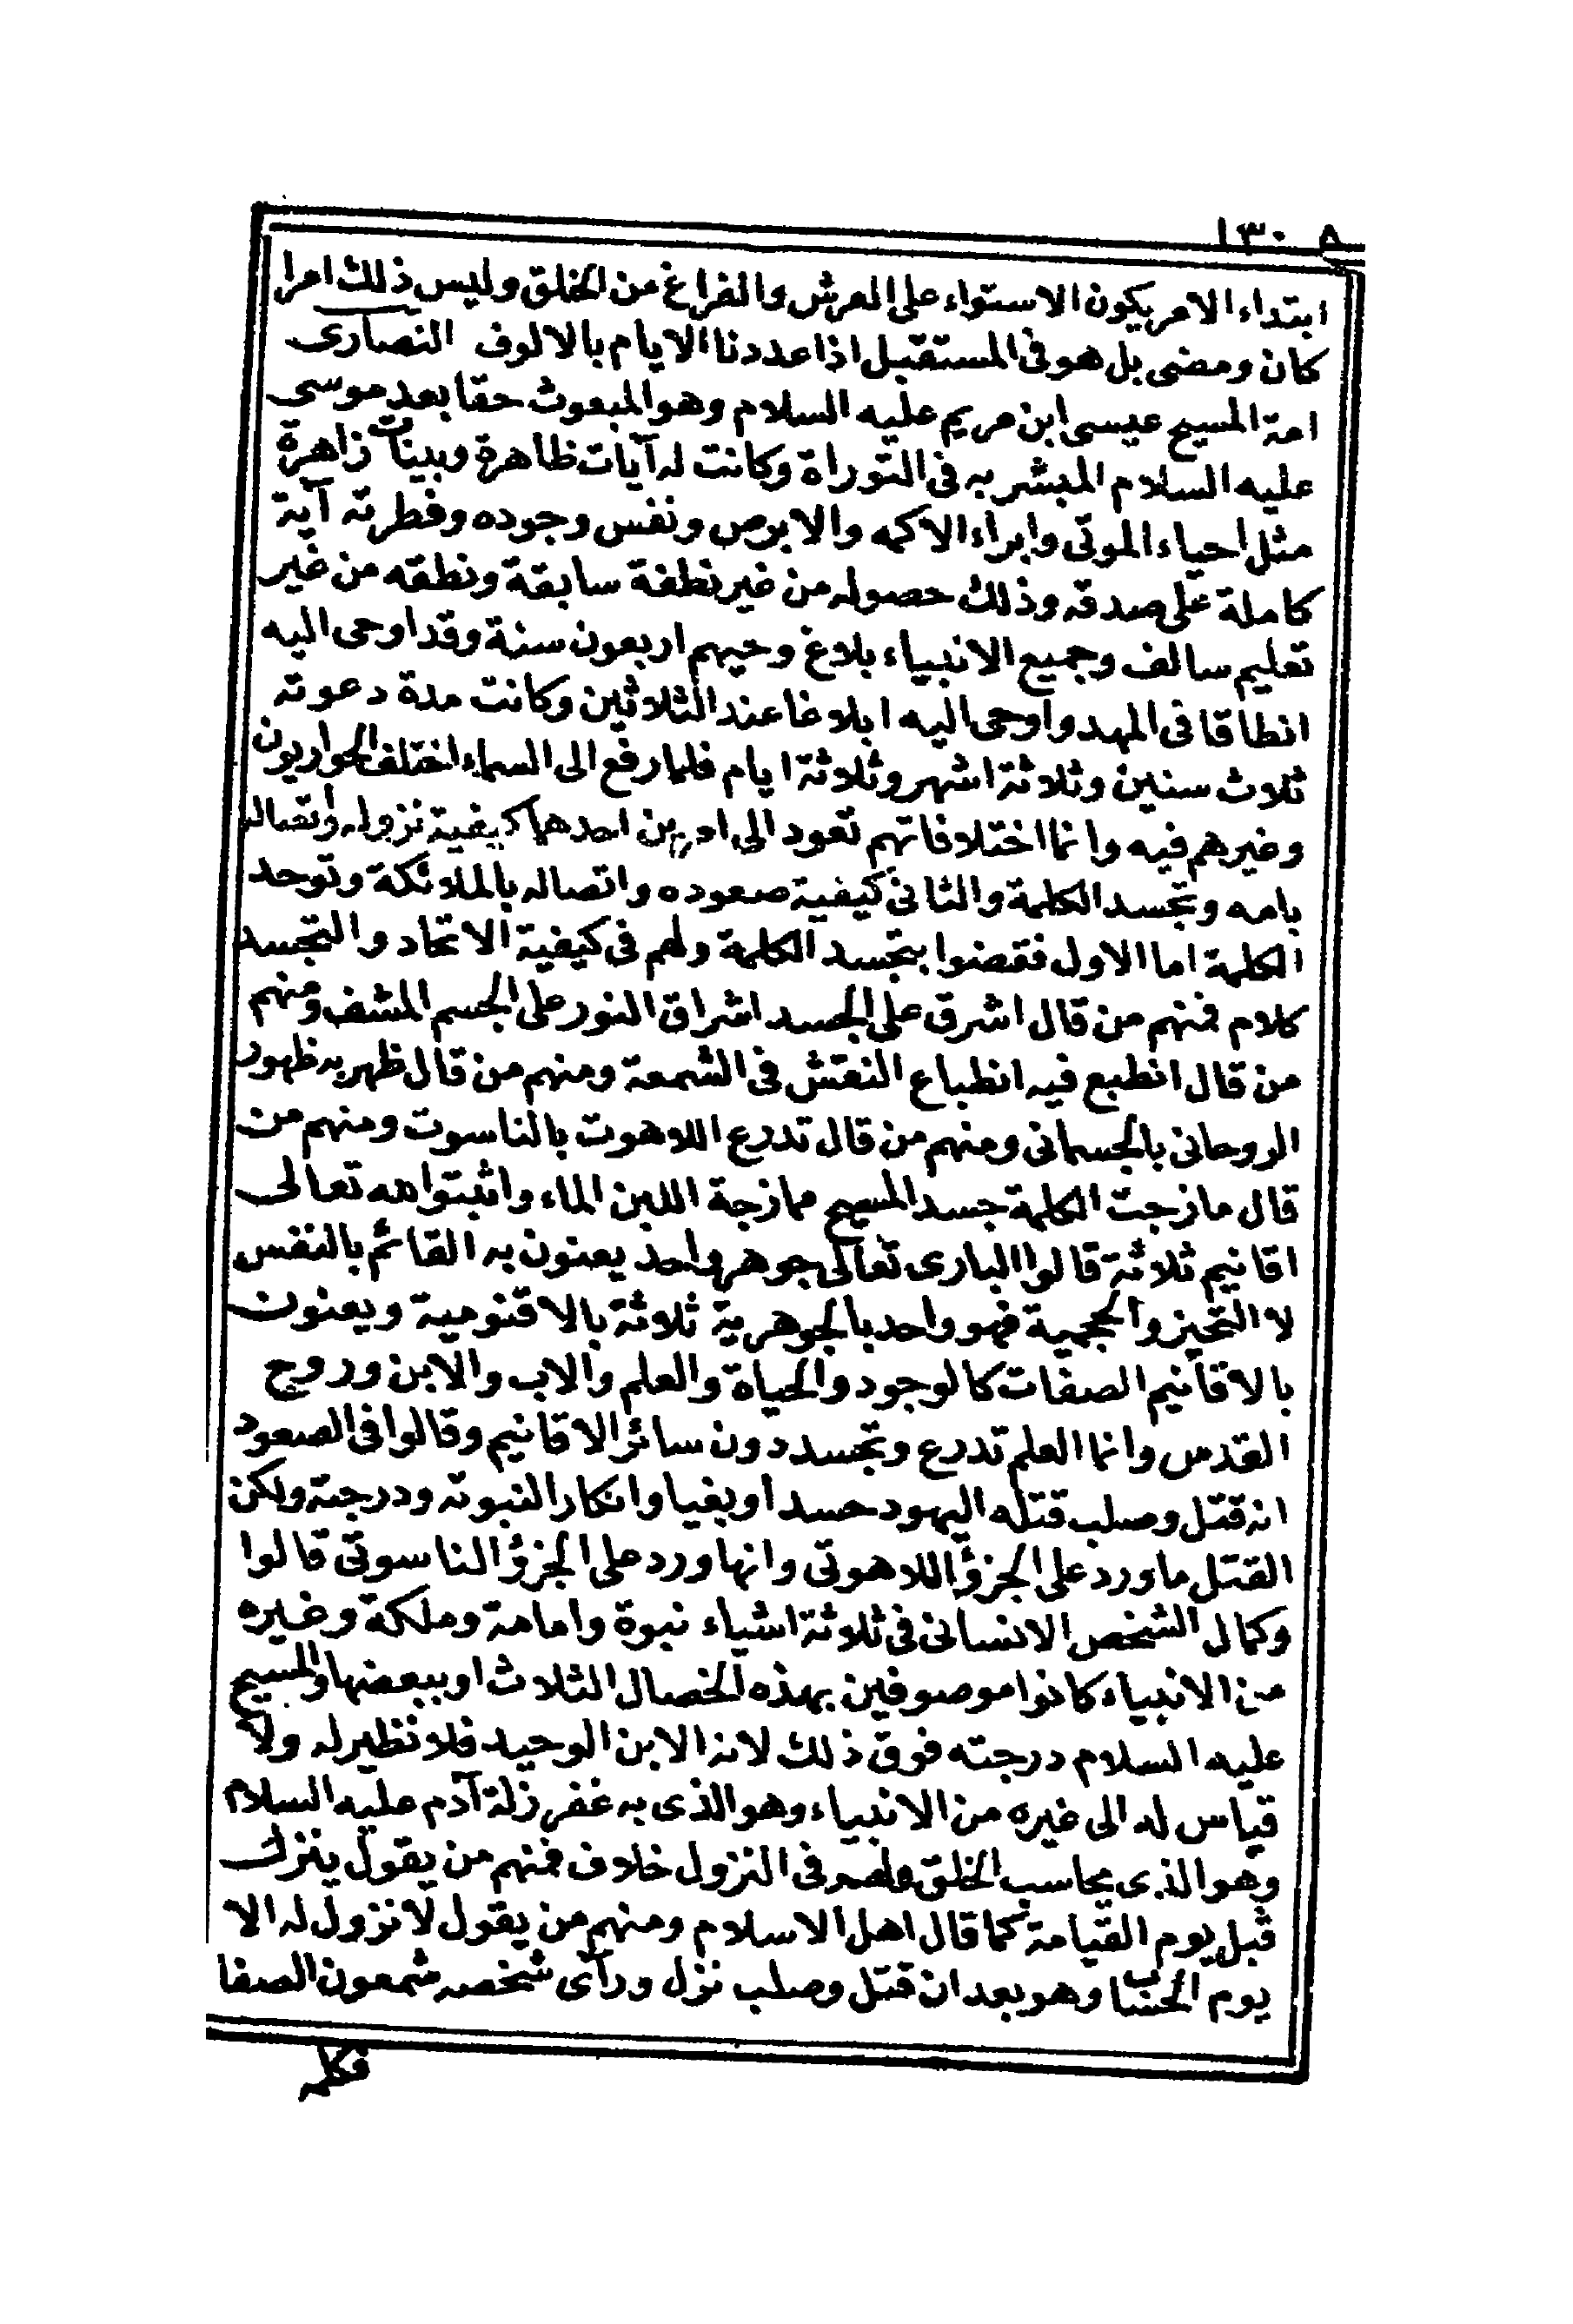 ١٣٠ ٨
ابتداء الامر يكون الاستواء على العرش والفراغ من الخلق وليس ذلك امرا
كان ومضى بل هو فى المستقبل اذا عددنا الايام بالالوف النصارى
امة المسيح عيسى ابن مريم عليه السلام وهو المبعوث حقا بعد موسى
عليه السلام المبشر به فى التوراة وكانت له آيات ظاهرة وبينات زاهرة
مثل احياء الموتى وابراء الاكمه والابرص ونفس وجوده وفطرته آية
كاملة على صدقه وذلك حصوله من غير نطفة سابقة ونطقه من غير
تعليم سالف وجميع الانبياء بلاغ وحيهم اربعون سنة وقد اوحى اليه
انطاقا فى المهد واوحى اليه ابلاغا عند الثلاثين وكانت مدة دعوته
ثلاث سنين وثلاثة اشهر وثلاثة ايام فلما رفع الى السماء اختلف الحواريون
وغيرهم فيه وانما اختلافاتهم تعود الى امرين احدهما كيفية نزوله واتصاله
بامه وتجسد الكلمة والثانى كيفية صعوده واتصاله بالملائكة وتوحد
الكلمة اما الاول فقضوا بتجسد الكلمة ولهم فى كيفية الاتحاد والتجسد
كلام فمنهم من قال اشرق على الجسد اشراق النور على الجسم المشف ومنهم
من قال انطبع فيه انطباع النقش فى الشمعة ومنهم من قال ظهر به ظهور
الروحانى بالجسمانى ومنهم من قال تدرع اللاهوت بالناسوت ومنهم من
قال مازجت الكلمة جسد المسيح ممازجة اللبن الماء واثبتوا لله تعالى
اقانيم ثلاثة قالوا البارى تعالى جوهر واحد يعنون به القائم بالنفس
لا التحيز والحجمية فهو واحد بالجوهرية ثلاثة بالاقنومية ويعنون
بالاقانيم الصفات كالوجود والحياة والعلم والاب والابن وروح
القدس وانما العلم تدرع وتجسد دون سائر الاقانيم وقالوا فى الصعود
انه قتل وصلب قتله اليهود حسدا وبغيا وانكارا لنبوته ودرجته ولكن
القتل ماورد على الجزؤ اللاهوتى وانها ورد على الجزؤ الناسوتى قالوا
وكمال الشخص الانسانى فى ثلاثة اشياء نبوة وامامة وملكة وغيره
من الانبياء كانوا موصوفين بهذه الخصال الثلاث او ببعضها والمسيح
عليه السلام درجته فوق ذلك لانه الابن الوحيد فلا نظير له ولا
قياس له الى غيره من الانبياء وهو الذى به غفر زلة آدم عليه السلام
وهو الذى يحاسب الخلق ولهم فى النزول خلاف فمنهم من يقول ينزل
قبل يوم القيامة كما قال اهل الاسلام ومنهم من يقول لا نزول له الا
يوم الحساب وهو بعد ان قتل وصلب نزل ورآى شخصه شمعون الصفا
فكلمه